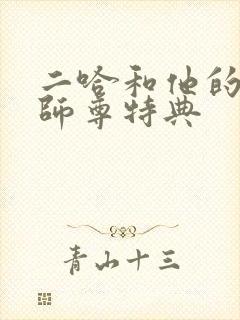 二哈和他的
師尊特典
青山十三